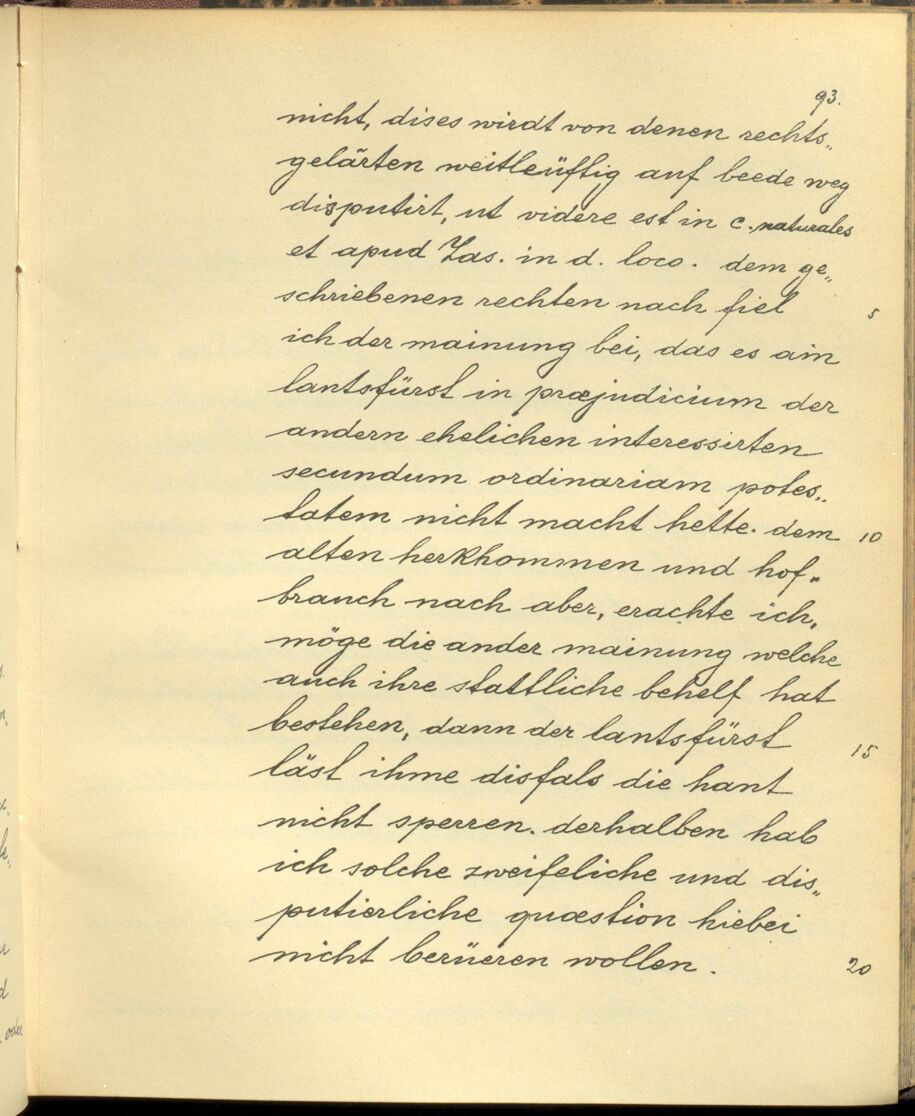 93.
nicht, dises wirdt von denen rechts„
gelärten weitleüftig auf beede weg
disputirt, ut videre est in c. naturales
et apud Zas. in d. loco. dem ge„
schriebenen rechten nach fiel
5
ich der mainung bei, das es ain
lantsfürst in præjudicium der
andern ehelichen interessirten
secundum ordinariam potes„
tatem nicht macht hette. dem
10
alten herkhommen und hof„
brauch nach aber, erachte ich,
möge die ander mainung welche
auch ihre stattliche behelf hat
bestehen, dann der lantsfürst
15
läst ihme disfals die hant
nicht sperren. derhalben hab
ich solche zweifeliche und dis„
putierliche quæstion hiebei
nicht berüeren wollen.
20
oder